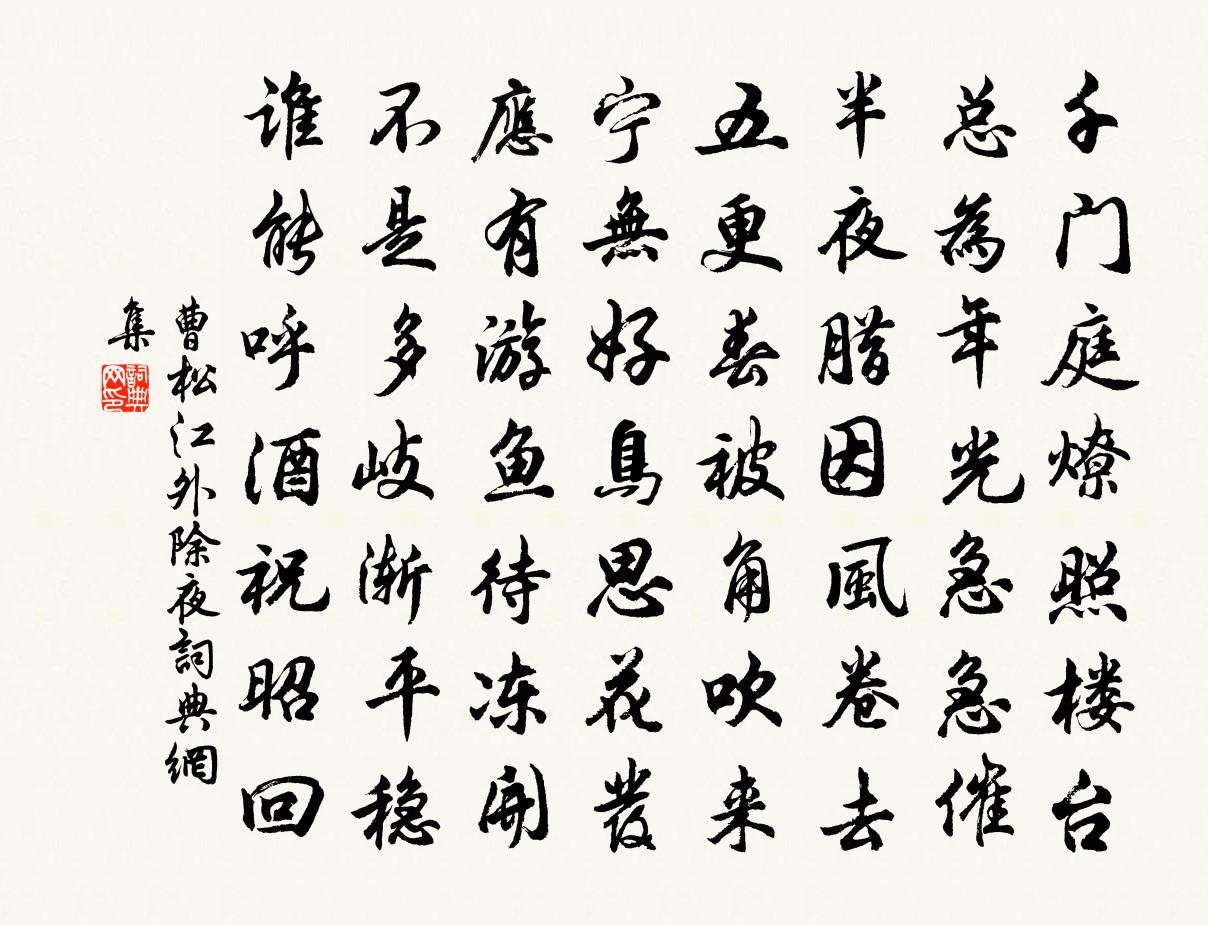 千门庭燎照楼台
总為年光急急催
半夜腊因風卷去
五更春被角吹来
宁無好鳥思花發
應有游鱼待冻開
不是多岐渐平稳
谁能呼酒祝昭回
曹松江外除夜詞典網
集
詞典网印